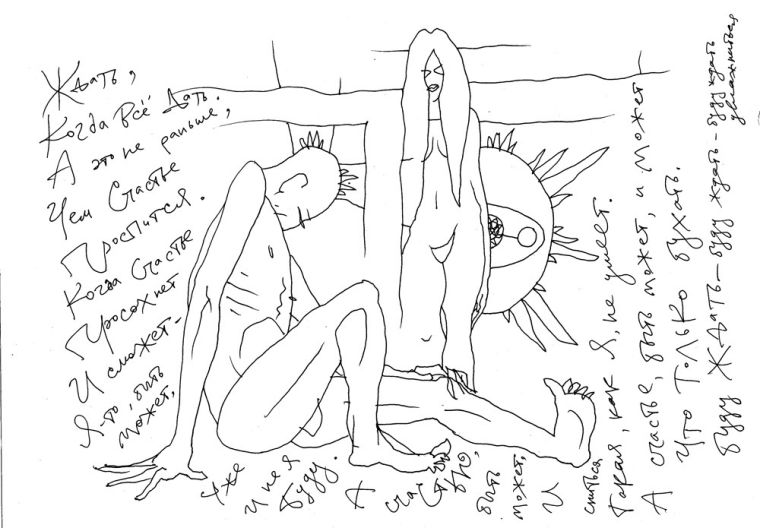 Ждать,
Когда всё дать.
А это не раньше,
Чем Счастье
Проспится.
Когда Счастье
Просохнет
И сможет –
Я-то, быть
может,
Уже
и не я
буду.
А
счастью,
быть
может,
И
сниться
такая, как я, не умеет.
А счастье, быть может, и может
Что только бухать.
Буду ждать – буду ждать – буду ждать